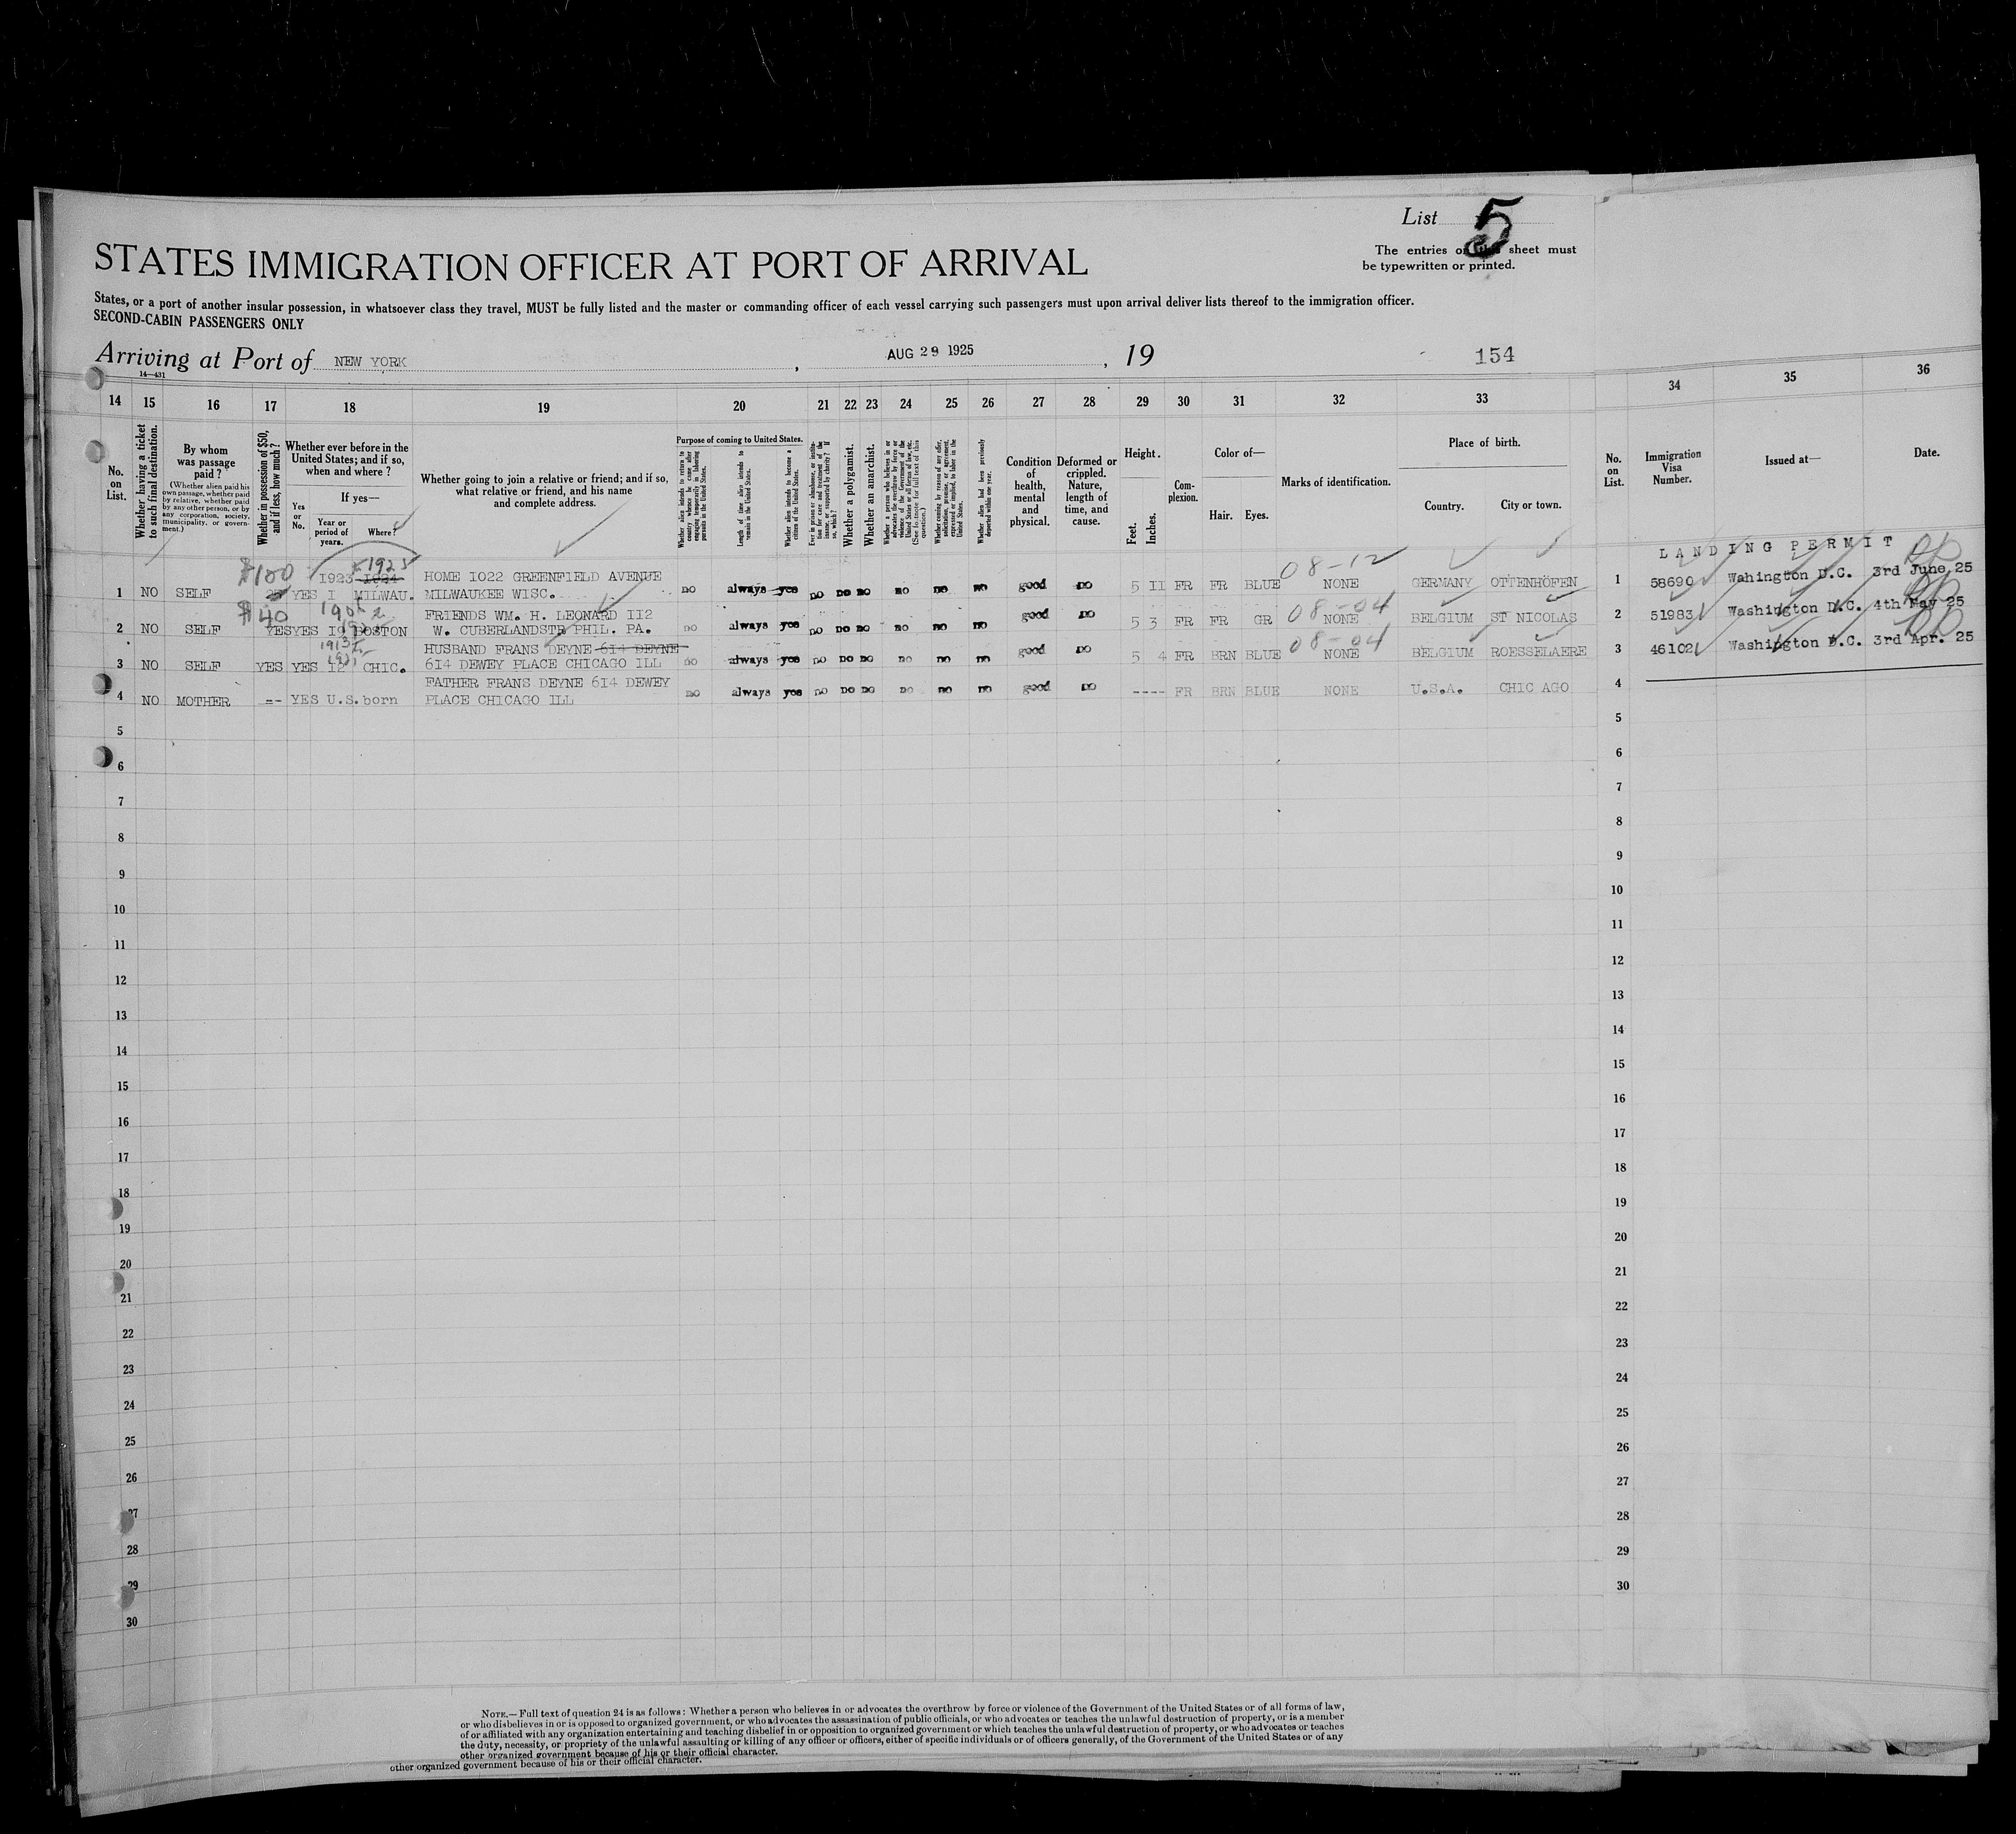 List 5
The entries on this sheet must
be typewritten or printed.
STATES IMMIGRATION OFFICER AT PORT OF ARRIVAL
States, or a port of another insular possession, in whatsoever class they travel, MUST be fully listed and the master or commanding officer of each vessel carrying such passengers must upon arrival deliver lists thereof to the immigration officer.
SECOND-CABIN PASSENGERS ONLY
Arriving at Port of NEW YORK, AUG 29 1925, 19 154
14—431
14 15 16 17 18 19 20 21 22 23 24 25 26 27 28 29 30 31 32 33 34 35 36
No. on List.
Whether having a ticket to such final destination.
By whom was passage paid?
(Whether alien paid his own passage, whether paid by relative, whether paid by any other person, or by any corporation, society, municipality, or government.)
Whether in possession of $50, and if less, how much?
Whether ever before in the United States; and if so, when and where?
Yes or No.
If yes—
Year or period of years.
Where?
Whether going to join a relative or friend; and if so, what relative or friend, and his name and complete address.
Purpose of coming to United States.
Whether alien intends to return to country whence he came after engaging temporarily in laboring pursuits in the United States.
Length of time alien intends to remain in the United States.
Whether alien intends to become a citizen of the United States.
Ever in prison or almshouse, or institution for care and treatment of the insane, or supported by charity? If so, which?
Whether a polygamist.
Whether an anarchist.
Whether a person who believes in or advocates the overthrow by force or violence of the Government of the United States or all forms of law, etc. (See footnote for full text of this question.)
Whether coming by reason of any offer, solicitation, promise, or agreement, expressed or implied, to labor in the United States.
Whether alien had been previously deported within one year.
Condition of health, mental and physical.
Deformed or crippled. Nature, length of time, and cause.
Height.
Feet.
Inches.
Complexion.
Color of—
Hair.
Eyes.
Marks of identification.
Place of birth.
Country.
City or town.
No. on List.
Immigration Visa Number.
Issued at—
Date.
LANDING PERMIT
$100 1923 1924 1925 HOME 1022 GREENFIELD AVENUE 08-12
1 NO SELF YES I MILWAU. MILWAUKEE WISC. no always yes no no no no no no good no 5 II FR FR BLUE NONE GERMANY OTTENHÖFEN 1 58690 Wahington D.C. 3rd June 25
$40 FRIENDS WM. H. LEONARD II2 08-04
2 NO SELF YES YES BOSTON W. CUBERLANDSTR PHIL. PA. no always yes no no no no no no good no 5 3 FR FR GR NONE BELGIUM ST NICOLAS 2 51983 Washington D.C. 4th May 25
HUSBAND FRANS DEYNE 6I4 DEYNE 08-04
3 NO SELF YES YES CHIC. 6I4 DEWEY PLACE CHICAGO ILL no always yes no no no no no no good no 5 4 FR BRN BLUE NONE BELGIUM ROESSELAERE 3 46102 Washington D.C. 3rd Apr. 25
FATHER FRANS DEYNE 6I4 DEWEY
4 NO MOTHER -- YES U.S.born PLACE CHICAGO ILL no always yes no no no no no no good no ---- FR BRN BLUE NONE U.S.A. CHIC AGO 4
5 5
6 6
7 7
8 8
9 9
10 10
11 11
12 12
13 13
14 14
15 15
16 16
17 17
18 18
19 19
20 20
21 21
22 22
23 23
24 24
25 25
26 26
27 27
28 28
29 29
30 30
NOTE.—Full text of question 24 is as follows: Whether a person who believes in or advocates the overthrow by force or violence of the Government of the United States or of all forms of law,
or who disbelieves in or is opposed to organized government, or who advocates the assassination of public officials, or who advocates or teaches the unlawful destruction of property, or is a member
of or affiliated with any organization entertaining and teaching disbelief in or opposition to organized government or which teaches the unlawful destruction of property, or who advocates or teaches
the duty, necessity, or propriety of the unlawful assaulting or killing of any officer or officers, either of specific individuals or of officers generally, of the Government of the United States or of any
other organized government because of his or their official character.
other organized government because of his or their official character.